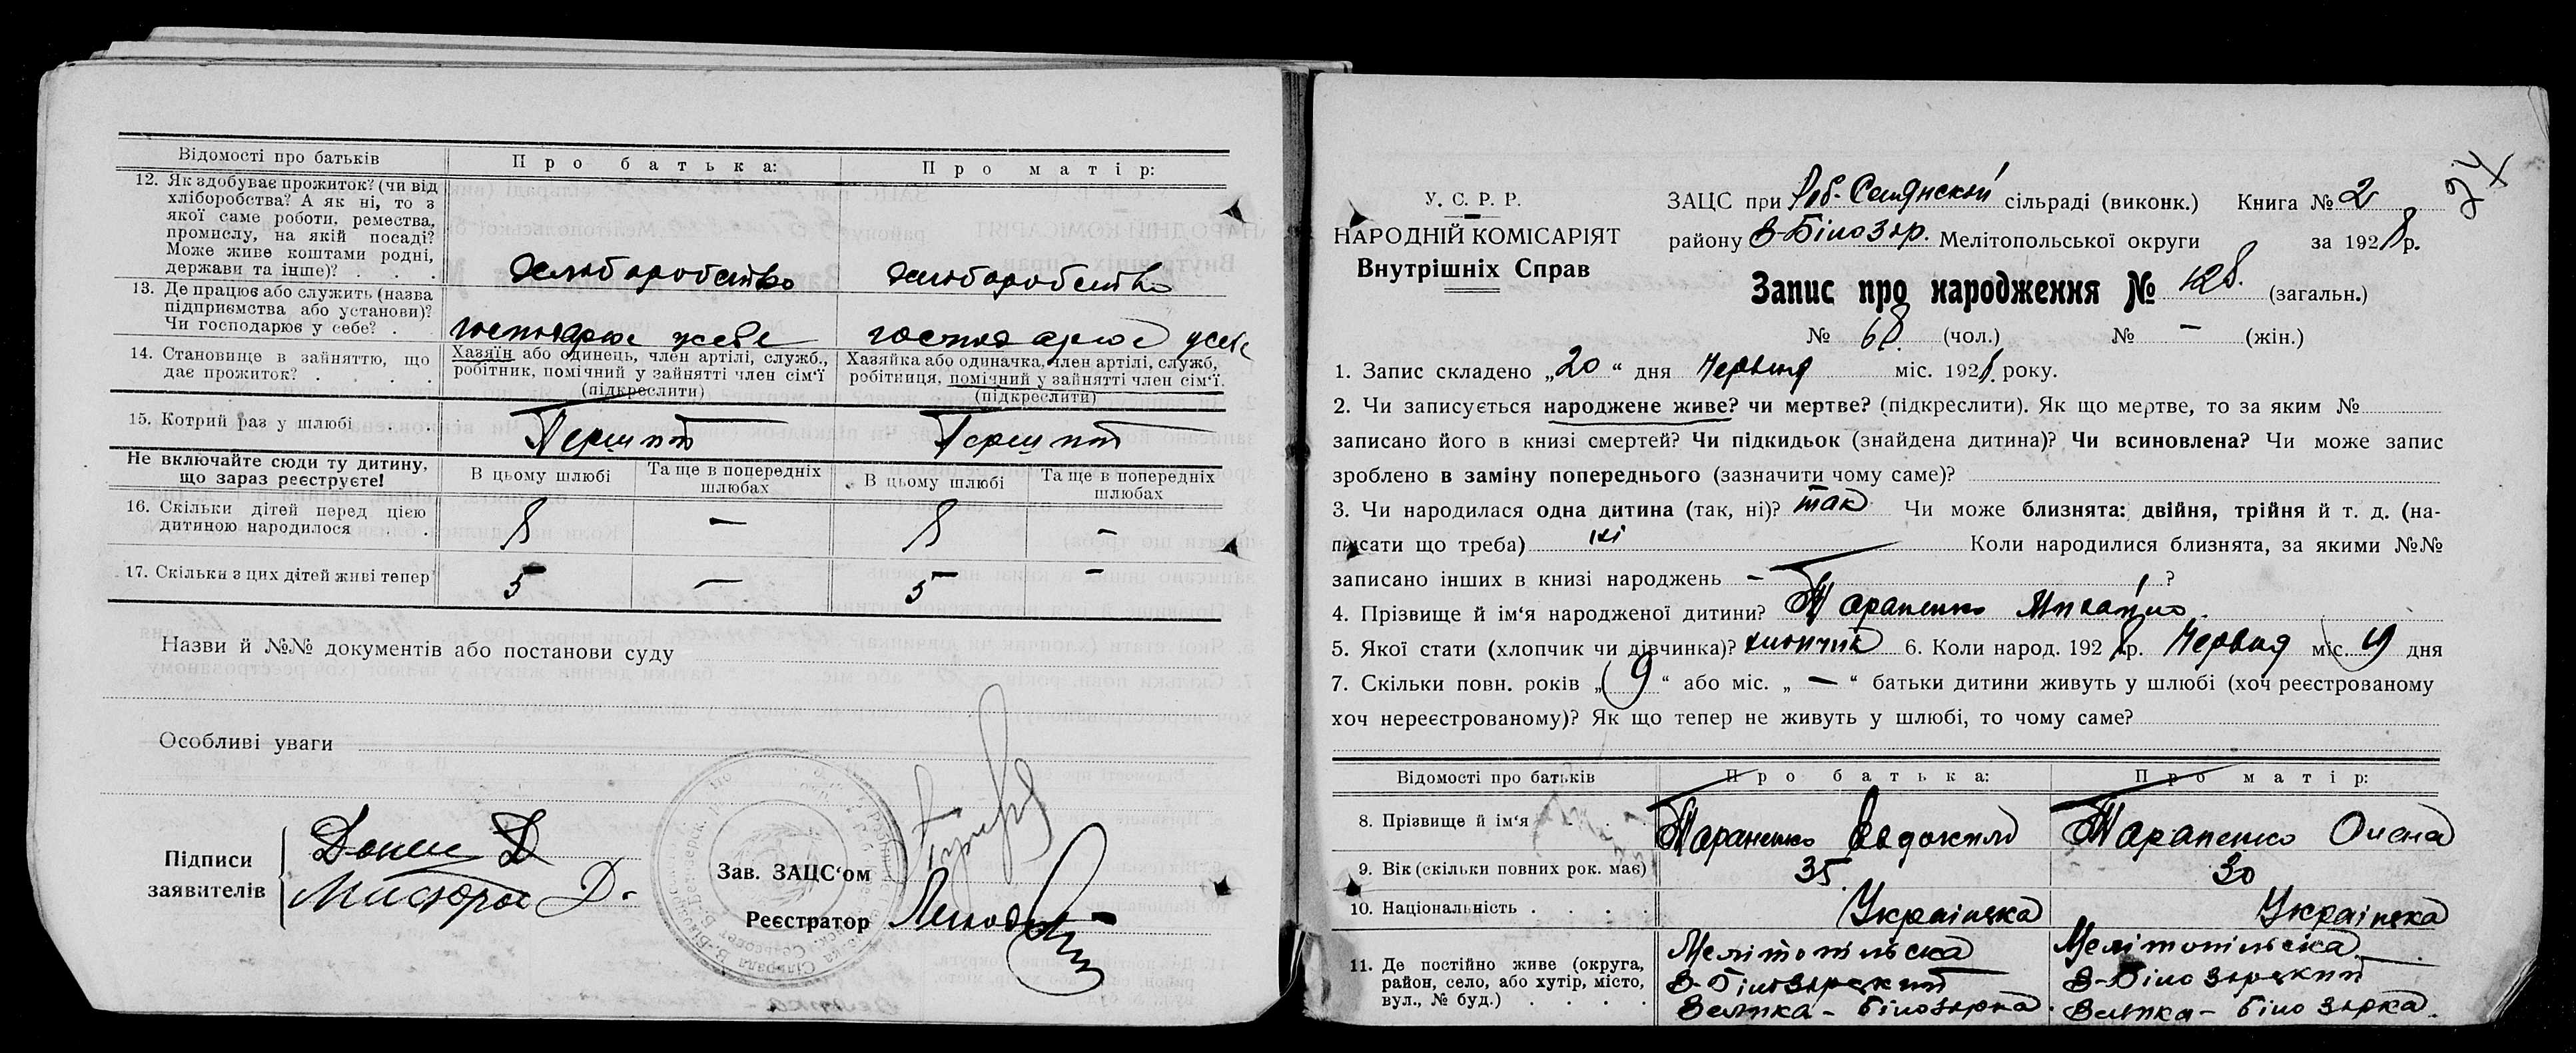 Відомості про батьків
Про батька:
Про матір:
12. Як здобуває прожиток? (чи від
хліборобства? А як ні, то з
якої саме роботи, ремества,
промислу, на якій посаді?
Може живе коштами родні,
держави та інше)? . . .
хліборобство
хліборобство
13. Де працює або служить (назва
підприємства або установи)?
Чи господарює у себе? .
господарює у себе
господарює у себе
14. Становище в зайняттю, що
дає прожиток? . . . .
Хазяїн або одинець, член артілі, служб.,
робітник, помічний у зайнятті член сім'ї
(підкреслити)
Хазяйка або одиначка, член артілі, служб,
робітниця, помічний у зайнятті член сім'ї.
(підкреслити)
15. Котрий раз у шлюбі . . .
Перший
Перший
Не включайте сюди ту дитину,
що зараз реєструєте!
В цьому шлюбі
Та ще в попередніх
шлюбах
В цьому шлюбі
Та ще в попередніх
шлюбах
16. Скільки дітей перед цією
дитиною народилося . .
8 — 8 —
17. Скільки з цих дітей живі тепер
5 — 5 —
Назви й №№ документів або постанови суду
Особливі уваги
Підписи
заявителів
Зав. ЗАЦС'ом
Реєстратор
У. С. Р. Р.
НАРОДНІЙ КОМІСАРІЯТ
Внутрішніх Справ
24
ЗАЦС при Роб-Селянской сільраді (виконк.) Книга № 2
району В-Білозер. Мелітопольської округи за 1928 р.
Запис про народження № 128. (загальн.)
№ 68 (чол.) № — (жін.)
1. Запис складено „20“ дня Червня міс. 1928 року.
2. Чи записується народжене живе? чи мертве? (підкреслити). Як що мертве, то за яким №
записано його в книзі смертей? Чи підкидьок (знайдена дитина)? Чи всиновлена? Чи може запис
зроблено в заміну попереднього (зазначити чому саме)?
3. Чи народилася одна дитина (так, ні)? так Чи може близнята: двійня, трійня й т. д. (на-
писати що треба) ні Коли народилися близнята, за якими №№
записано інших в книзі народжень — ?
4. Прізвище й ім'я народженої дитини? Тараненко Михайло
5. Якої стати (хлопчик чи дівчинка)? хлопчик 6. Коли народ. 1928 р. Червня міс. 19 дня
7. Скільки повн. років „9“ або міс. „—“ батьки дитини живуть у шлюбі (хоч реєстрованому
хоч нереєстрованому)? Як що тепер не живуть у шлюбі, то чому саме?
Відомості про батьків
Про батька:
Про матір:
8. Прізвище й ім'я . . . .
Тараненко Евдоким
Тараненко Олена
9. Вік (скільки повних рок. має)
35
30
10. Національність . . . .
Українська
Українська
11. Де постійно живе (округа,
район, село, або хутір, місто,
вул., № буд.) . . . .
Мелітопільська
В-Білозерский
Велика-Білозерка
Мелітопільська
В-Білозерский
Велика-Білозерка.